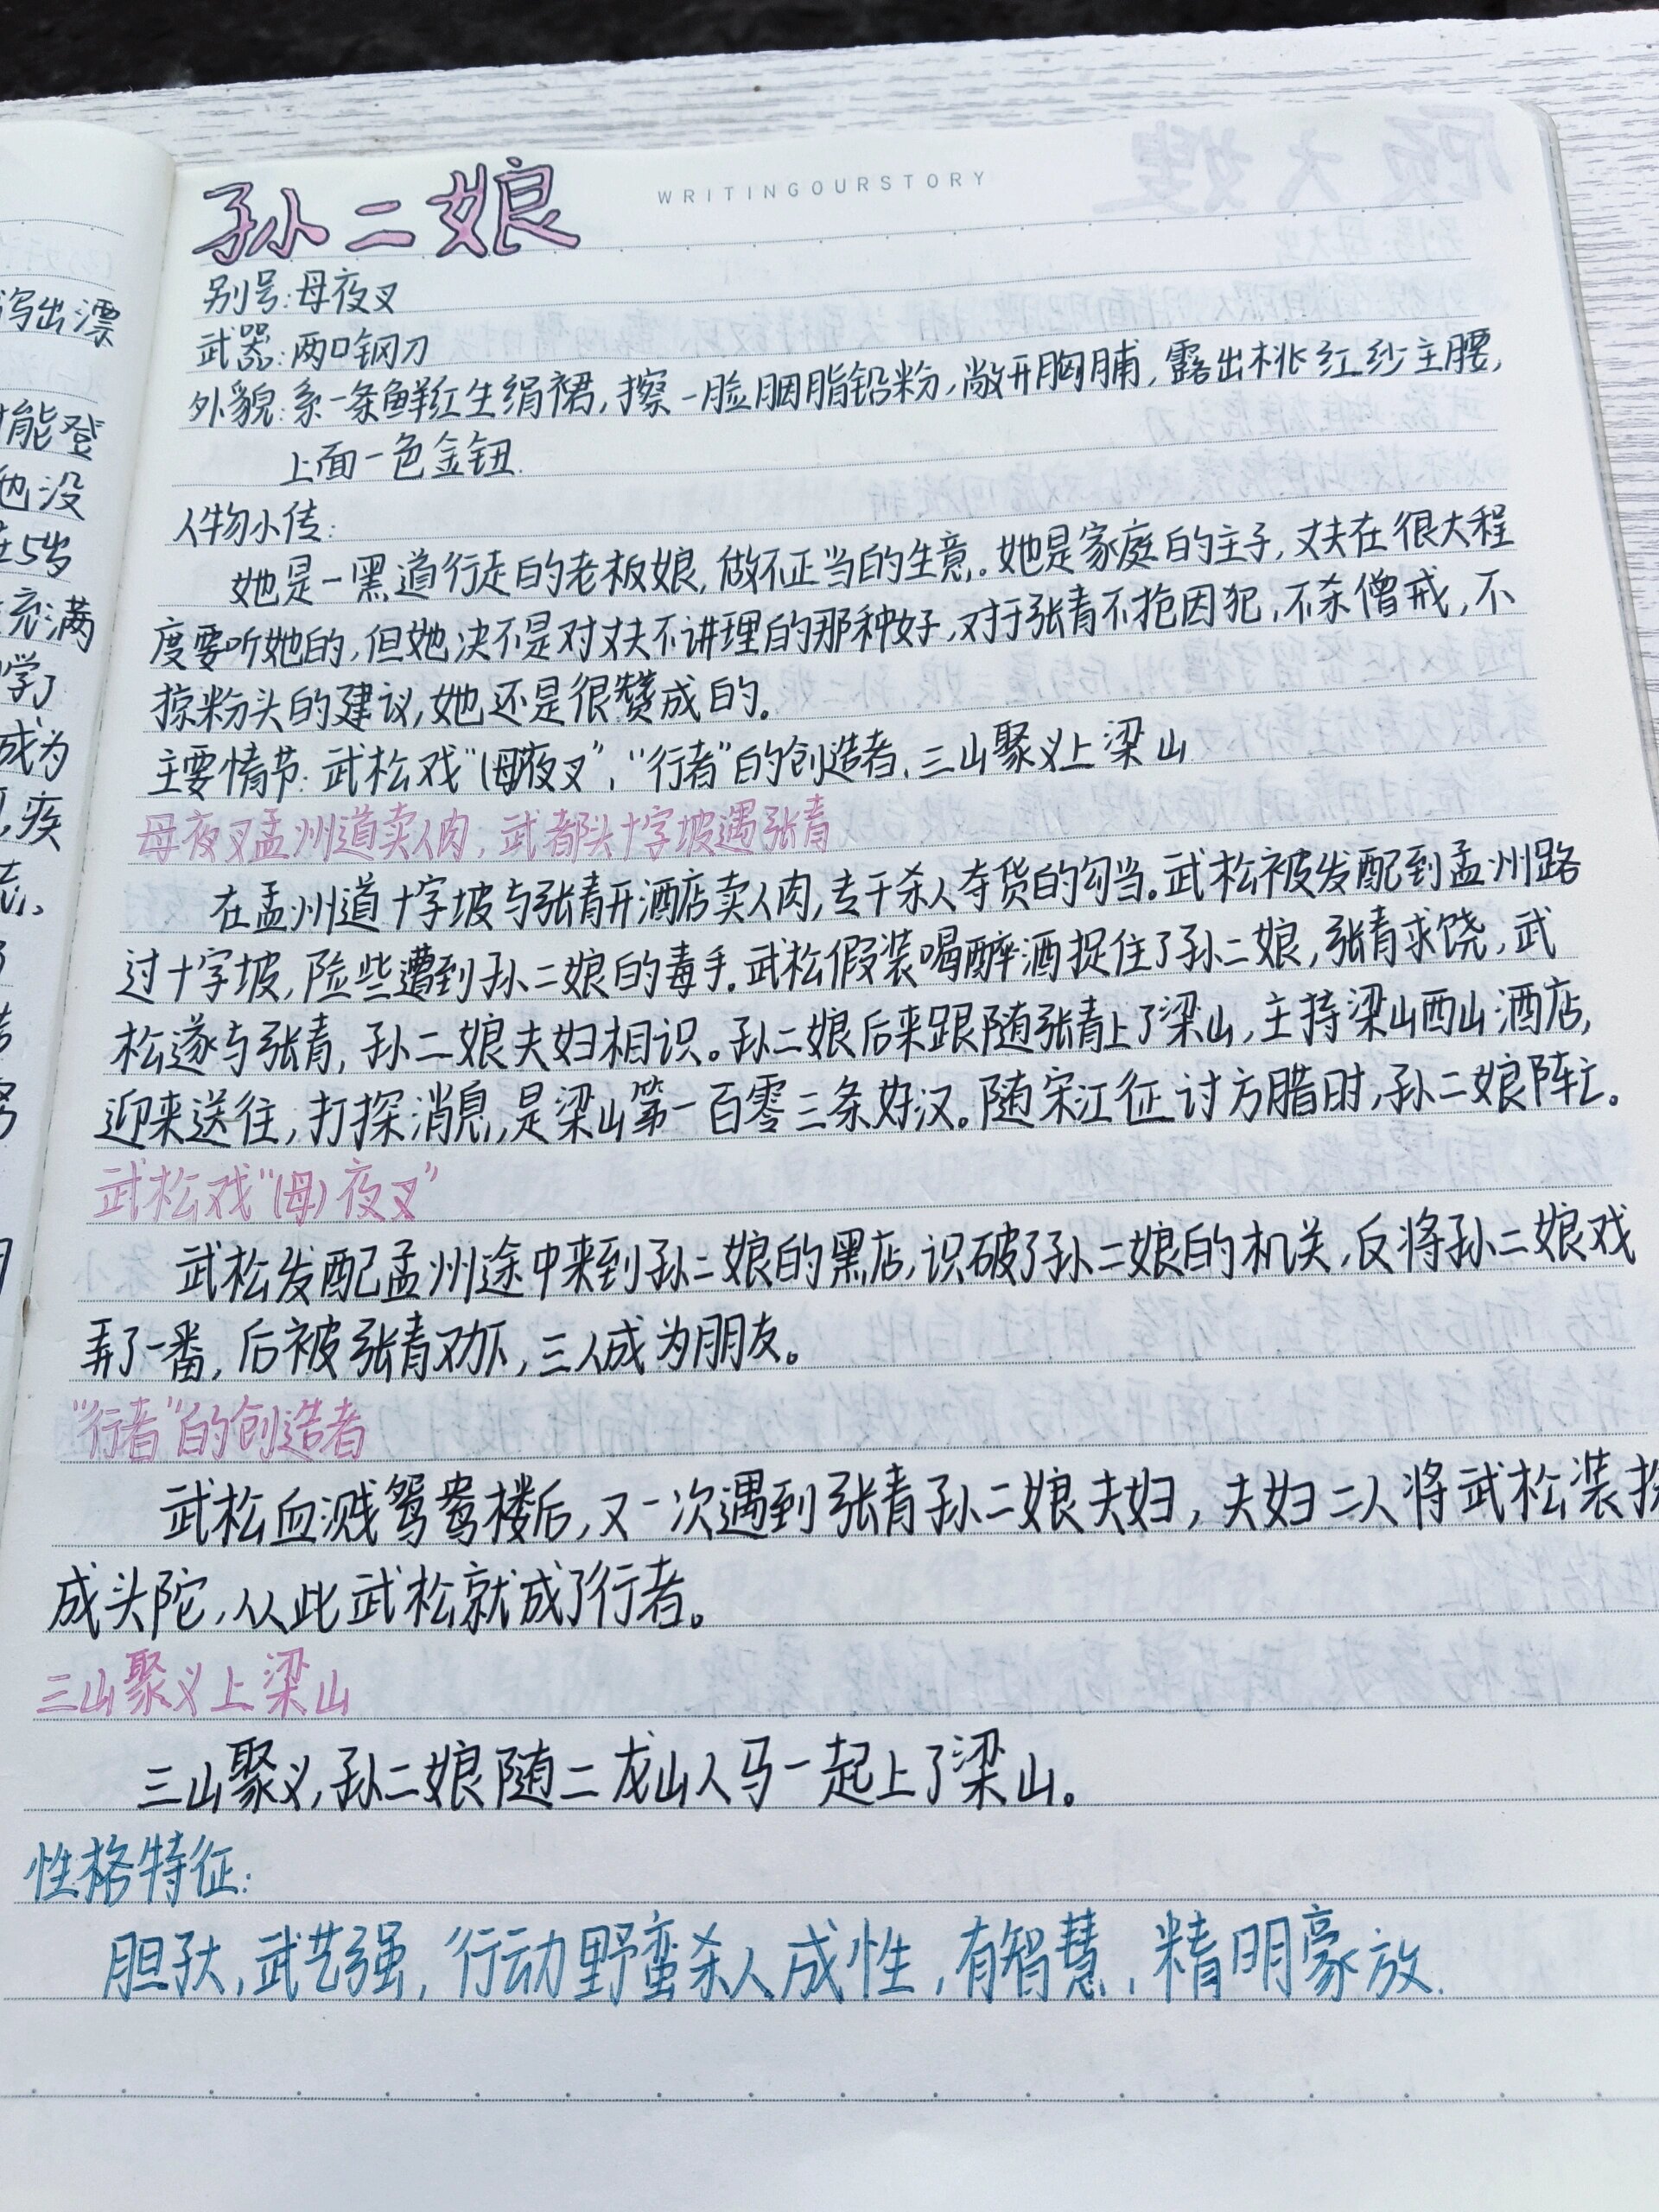 孙二娘
WRITINGOURSTORY
别号:母夜叉
武器:两口钢刀
外貌:系一条鲜红生绢裙,擦一脸胭脂铅粉,敞开胸脯,露出桃红纱主腰,
上面一色金钮.
人物小传:
她是一黑道行走的老板娘,做不正当的生意。她是家庭的主子,丈夫在很大程
度要听她的,但她决不是对丈夫不讲理的那种好,对于张青不抢囚犯,不杀僧戒,不
掠粉头的建议,她还是很赞成的。
主要情节:武松戏“(母)夜叉”,“行者”的创造者,三山聚义上梁山
母夜叉孟州道卖人肉,武都头十字坡遇张青
在孟州道十字坡与张青开酒店卖人肉,专干杀人夺货的勾当。武松被发配到孟州路
过十字坡,险些遭到孙二娘的毒手。武松假装喝醉酒捉住了孙二娘,张青求饶,武
松遂与张青,孙二娘夫妇相识。孙二娘后来跟随张青上了梁山,主持梁山西山酒店,
迎来送往,打探消息,是梁山第一百零三条好汉。随宋江征讨方腊时,孙二娘阵亡。
武松戏“(母)夜叉”
武松发配孟州途中来到孙二娘的黑店,识破了孙二娘的机关,反将孙二娘戏
弄了一番,后被张青劝下,三人成为朋友。
“行者”的创造者
武松血溅鸳鸯楼后,又一次遇到张青孙二娘夫妇,夫妇二人将武松装扮
成头陀,从此武松就成了行者。
三山聚义上梁山
三山聚义,孙二娘随二龙山人马一起上了梁山。
性格特征:
胆子大,武艺强,行动野蛮杀人成性,有智慧,精明豪放.